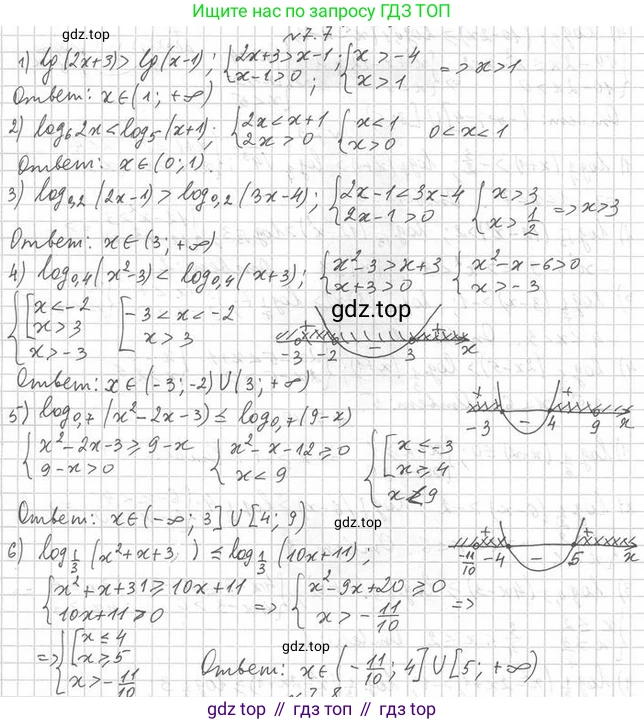 Ищите нас по запросу ГДЗ ТОП
№7.7
1) lg(2x+3) > lg(x-1); {2x+3>x-1; x-1>0; {x>-4 x>1 => x>1
Ответ: x∈(1; +∞)
2) log₆2x<log₅(x+1); {2x<x+1 2x>0 {x<1 x>0 0<x<1
Ответ: x∈(0;1).
3) log₀,₂(2x-1) > log₀,₂(3x-4); {2x-1<3x-4 2x-1>0 {x>3 x>1/2 => x>3
Ответ: x∈(3; +∞)
4) log₀,₄(x²-3) < log₀,₄(x+3); {x²-3>x+3 x+3>0 {x²-x-6>0 x>-3
{[x<-2 x>3 x>-3 [-3<x<-2 x>3
gdz.top
+ - + -3 -2 3 x
Ответ: x∈(-3;-2)∪(3; +∞)
5) log₀,₇(x²-2x-3) ≤ log₀,₇(9-x)
+ - + -3 4 9 x
{x²-2x-3≥9-x 9-x>0 {x²-x-12≥0 x<9 {[x≤-3 x≥4 x<9
Ответ: x∈(-∞; 3]∪[4; 9)
gdz.top
6) log₁/₃(x²+x+3 ) ≤ log₁/₃(10x+11);
+ - + -11/10 -4 5 x
{x²+x+31≥10x+11 10x+11>0 => {x²-9x+20≥0 x>-11/10 =>
=> {[x≤4 x≥5 x>-11/10
gdz.top
Ответ: x∈(-11/10; 4]∪[5; +∞)
№7.8
gdz.top // гдз.топ // гдз.top